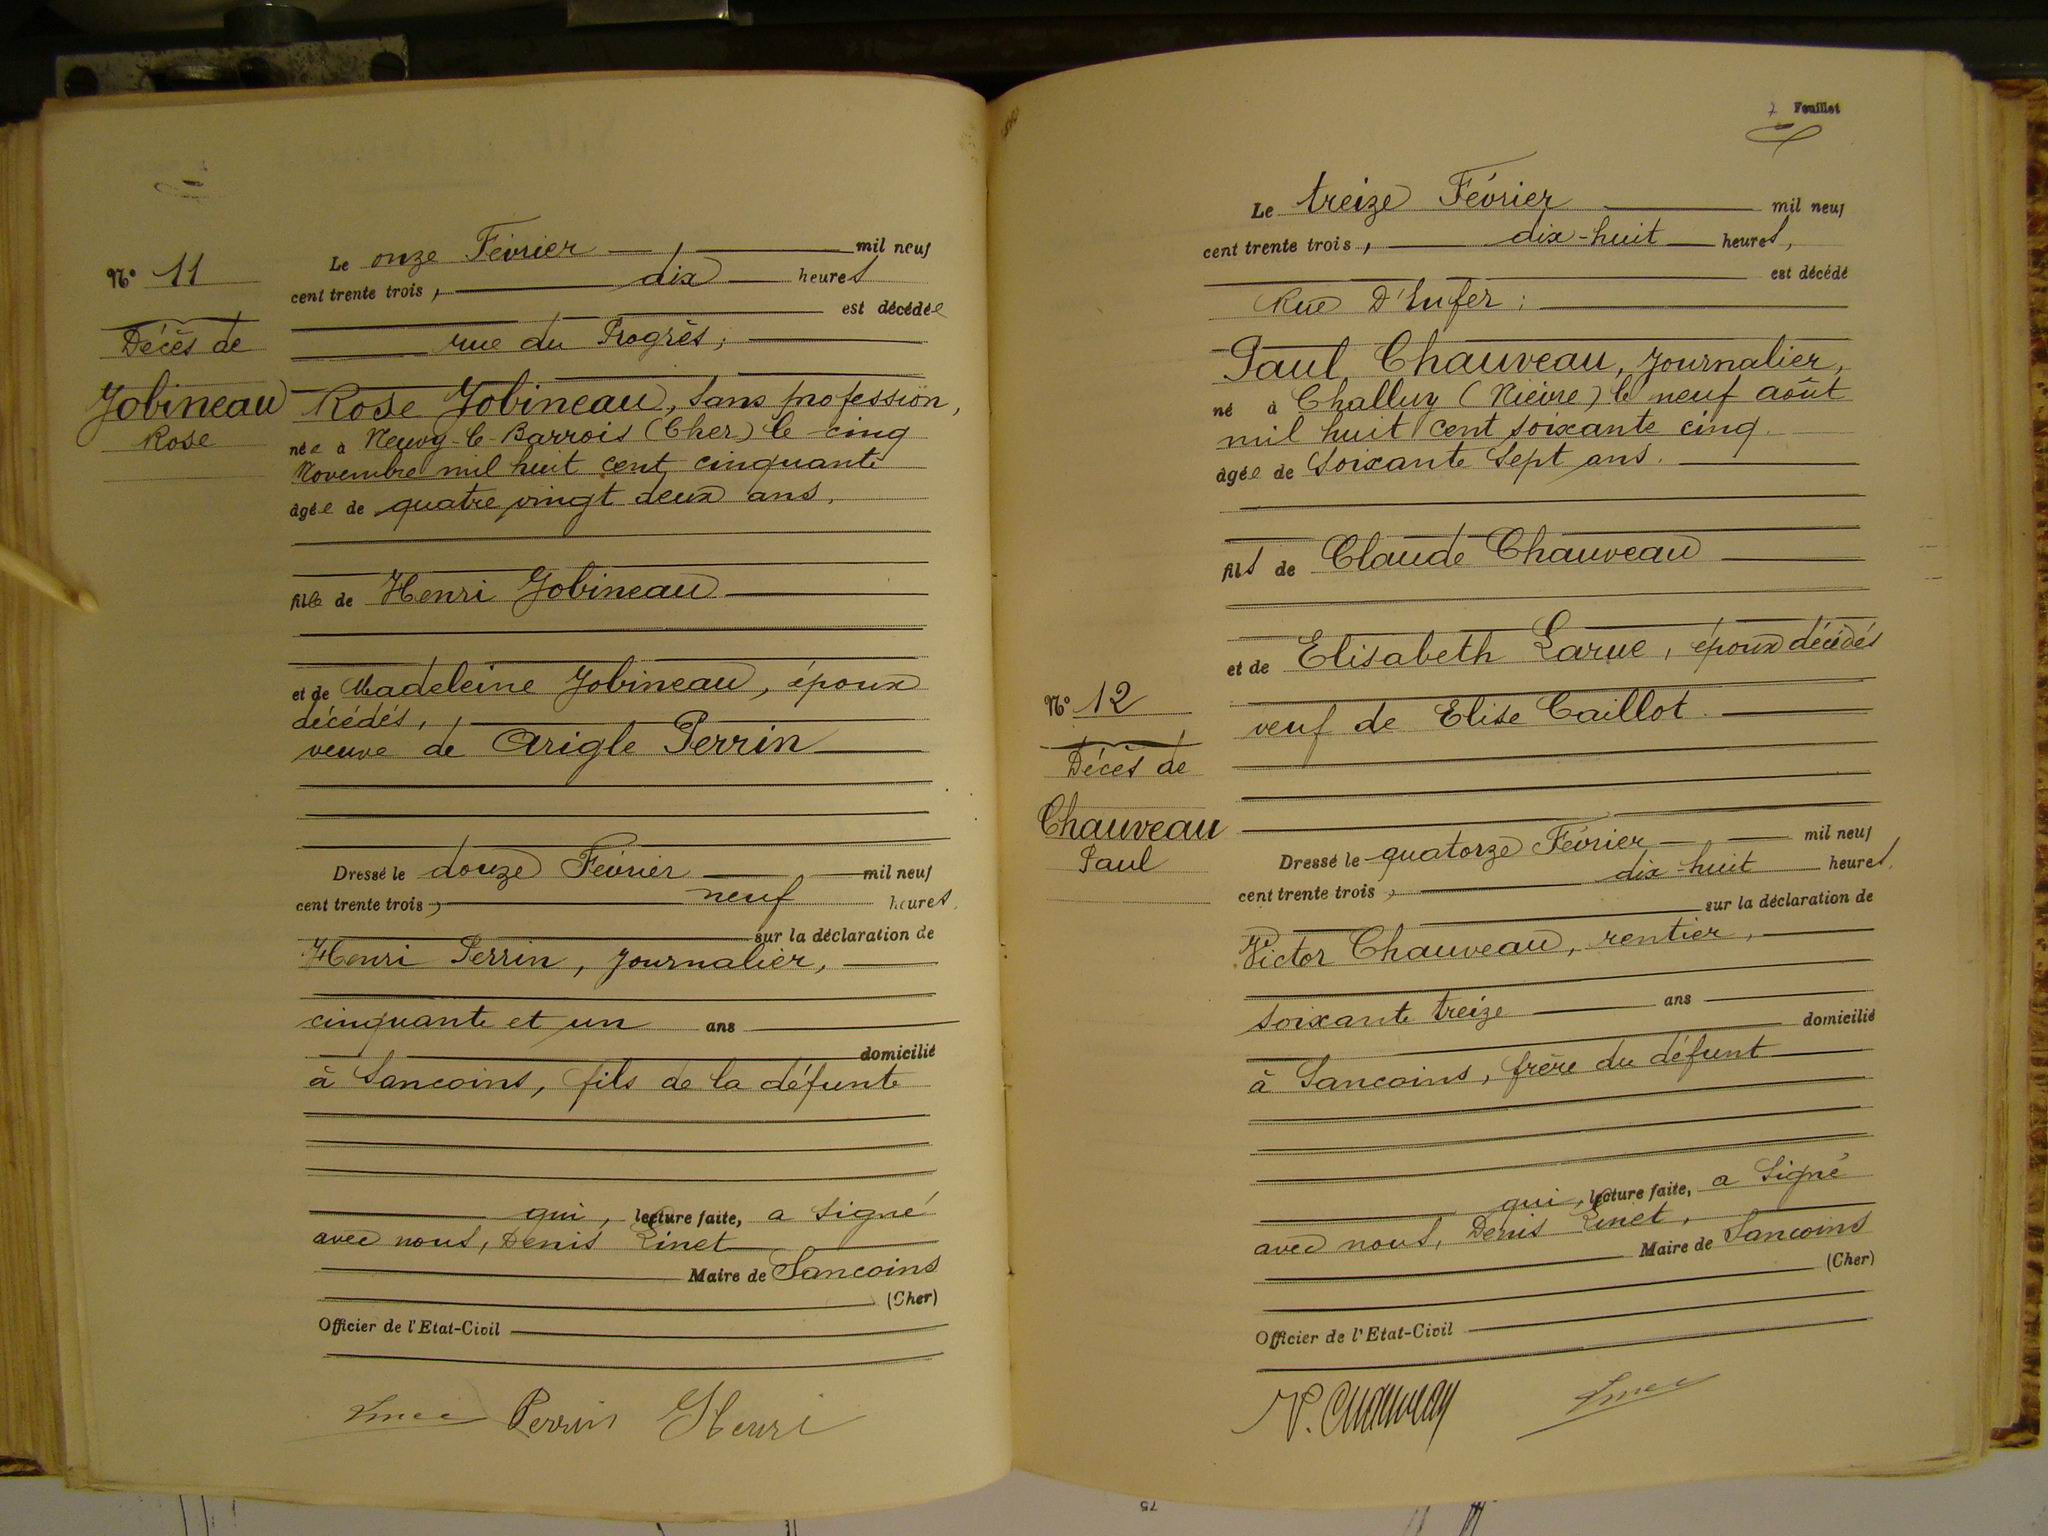 N° 11
Décès de
Jobineau
Rose
Le onze Février mil neuf
cent trente trois, dix heures
est décédée
rue du Progrès;
Rose Jobineau, sans profession,
née à Neuvy-le-Barrois (Cher) le cinq
Novembre mil huit cent cinquante
âgée de quatre vingt deux ans.
fille de Henri Jobineau
et de Madeleine Jobineau, époux
décédés,
veuve de Arigle Perrin
Dressé le douze Février mil neuf
cent trente trois, neuf heures.
sur la déclaration de
Henri Perrin, journalier,
cinquante et un ans
domicilié
à Sancoins, fils de la défunte
qui, lecture faite, a signé
avec nous, Denis Linet
Maire de Sancoins
(Cher)
Officier de l'Etat-Civil
Perrin Henri
7 Feuillet
N° 12
Décès de
Chauveau
Paul
Le treize Février mil neuf
cent trente trois, dix-huit heures,
est décédé
Rue D'Enfer;
Paul Chauveau, journalier,
né à Challuy (Nièvre) le neuf août
mil huit cent soixante cinq.
âgée de soixante sept ans.
fils de Claude Chauveau
et de Elisabeth Larue, époux décédés
veuf de Elise Caillot.
Dressé le quatorze Février mil neuf
cent trente trois, dix-huit heures.
sur la déclaration de
Victor Chauveau, rentier,
soixante treize ans
domicilié
à Sancoins, frère du défunt
qui, lecture faite, a signé
avec nous, Denis Linet,
Maire de Sancoins
(Cher)
Officier de l'Etat-Civil
V. Chauveau
75